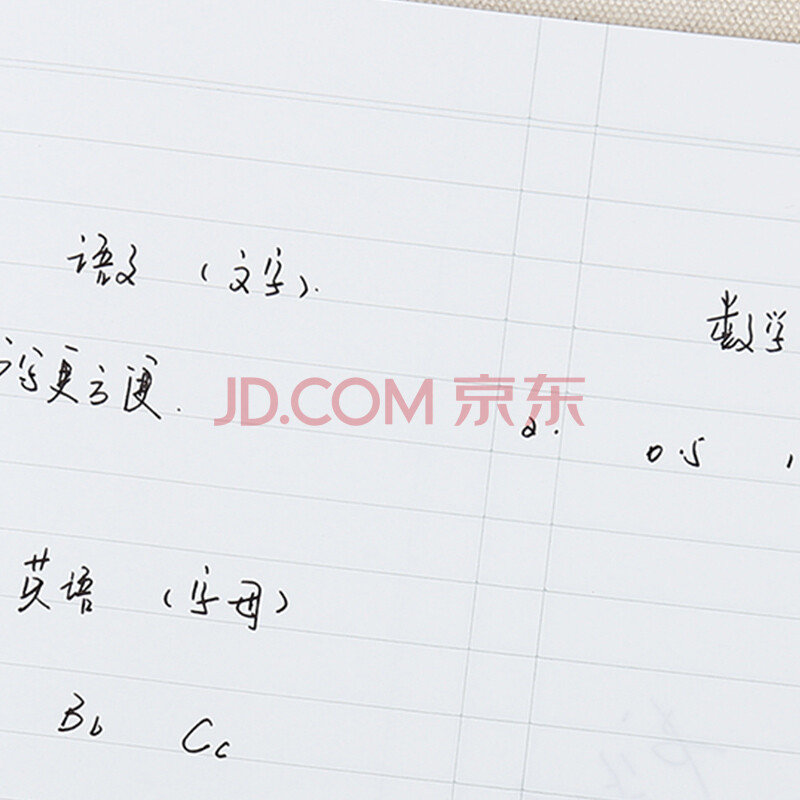 语文（文字）.
数学
写更方便.
JD.COM 京东
2.
0.5 1
英语（字母）
Bb Cc